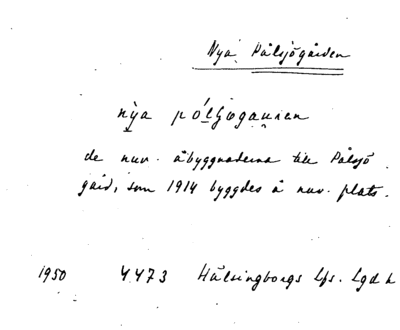 Nya Pålsjögården
nya pólʃøgauren
de nuv. åbyggnaderna till Pålsjö
gård, som 1914 byggdes å nuv. plats.
1950 4473 Hälsingborgs Lfs. Lgd h